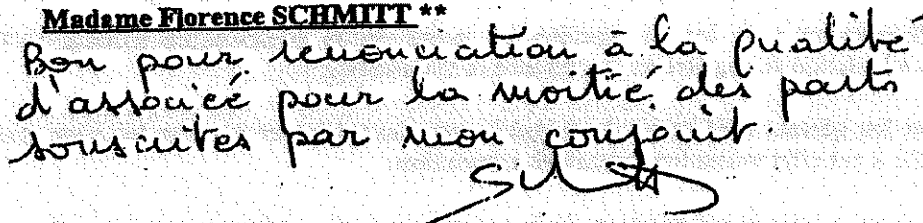 Madame Florence SCHMITT **
Bon pour renonciation à la qualité
d'associé pour la moitié des parts
souscrites par mon conjoint.